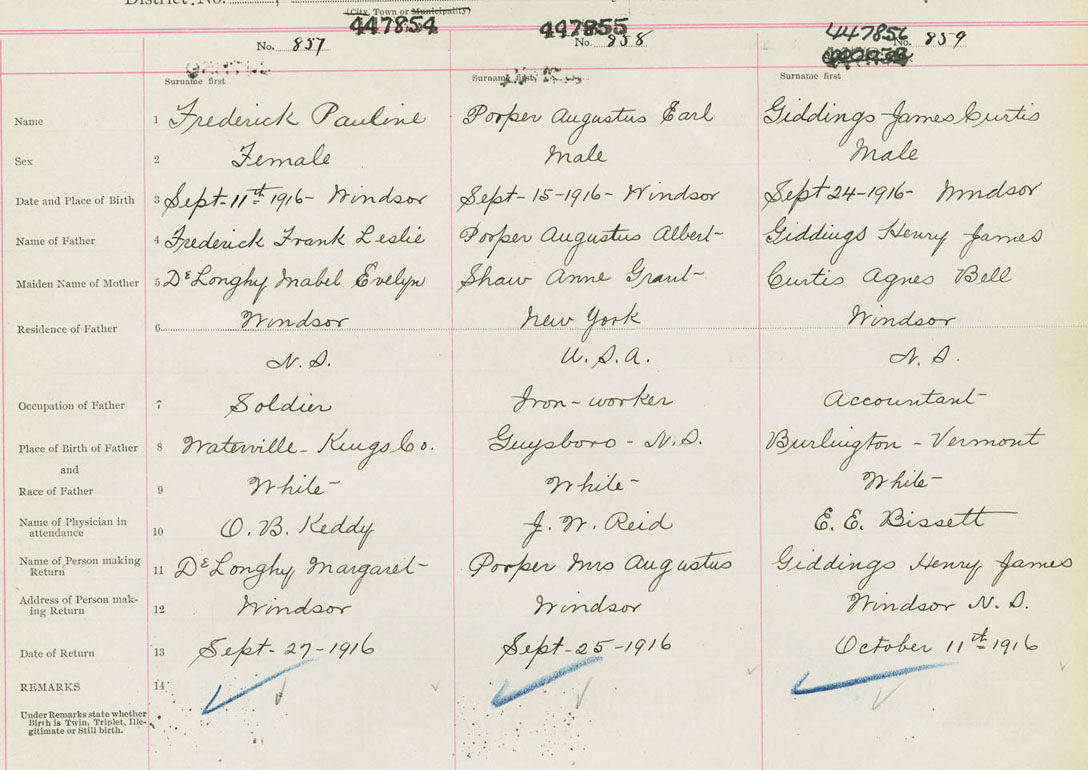 District No. ,
(City, Town or Municipality)
447854 447855 447856
No. 857 No. 858 No. 859
Surname first Surname first Surname first
Name 1 Frederick Pauline Popper Augustus Earl Giddings James Curtis
Sex 2 Female Male Male
Date and Place of Birth 3 Sept. 11th 1916 - Windsor Sept - 15 - 1916 - Windsor Sept 24 - 1916 - Windsor
Name of Father 4 Frederick Frank Leslie Popper Augustus Albert Giddings Henry James
Maiden Name of Mother 5 DeLonghy Mabel Evelyn Shaw Anne Grant Curtis Agnes Bell
Residence of Father 6 Windsor New York Windsor
N. S. U. S. A. N. S.
Occupation of Father 7 Soldier Iron - worker Accountant
Place of Birth of Father 8 Waterville - Kings Co. Guysboro - N. S. Burlington - Vermont
and
Race of Father 9 White White White
Name of Physician in
attendance 10 O. B. Keddy J. W. Reid E. E. Bissett
Name of Person making
Return 11 DeLonghy Margaret Popper Mrs Augustus Giddings Henry James
Address of Person mak-
ing Return 12 Windsor Windsor Windsor N. S.
Date of Return 13 Sept - 27 - 1916 Sept - 25 - 1916 October 11th 1916
REMARKS 14
Under Remarks state whether
Birth is Twin, Triplet, Ille-
gitimate or Still birth.